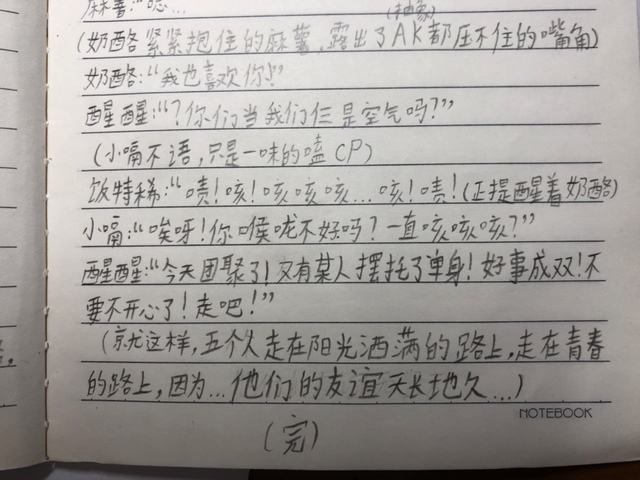 麻薯：“嗯…
(抽象)
(奶酪紧紧抱住的麻薯，露出了AK都压不住的嘴角)
奶酪：“我也喜欢你！”
醒醒：“？你们当我们仨是空气吗？”
(小嗝不语，只是一味的嗑CP)
饭特稀：“啧！咳！咳咳咳…咳！啧！(正提醒着奶酪)
小嗝：“唉呀！你喉咙不好吗？一直咳咳咳？”
醒醒：“今天团聚了！又有某人摆托了单身！好事成双！不
要不开心了！走吧！”
(就这样，五个人走在阳光洒满的路上，走在青春
的路上，因为…他们的友谊天长地久…)
NOTEBOOK
(完)